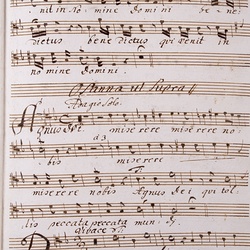 nit in no mine domini be ne
dictus bene dictus qui venit in
no mine domini.
Osanna ut Supra
Adagio Solo
Agnus Dei misere re misere re no
bis miserere
miserere nobis Agnus dei qui tol
lis peccata peccata mun di